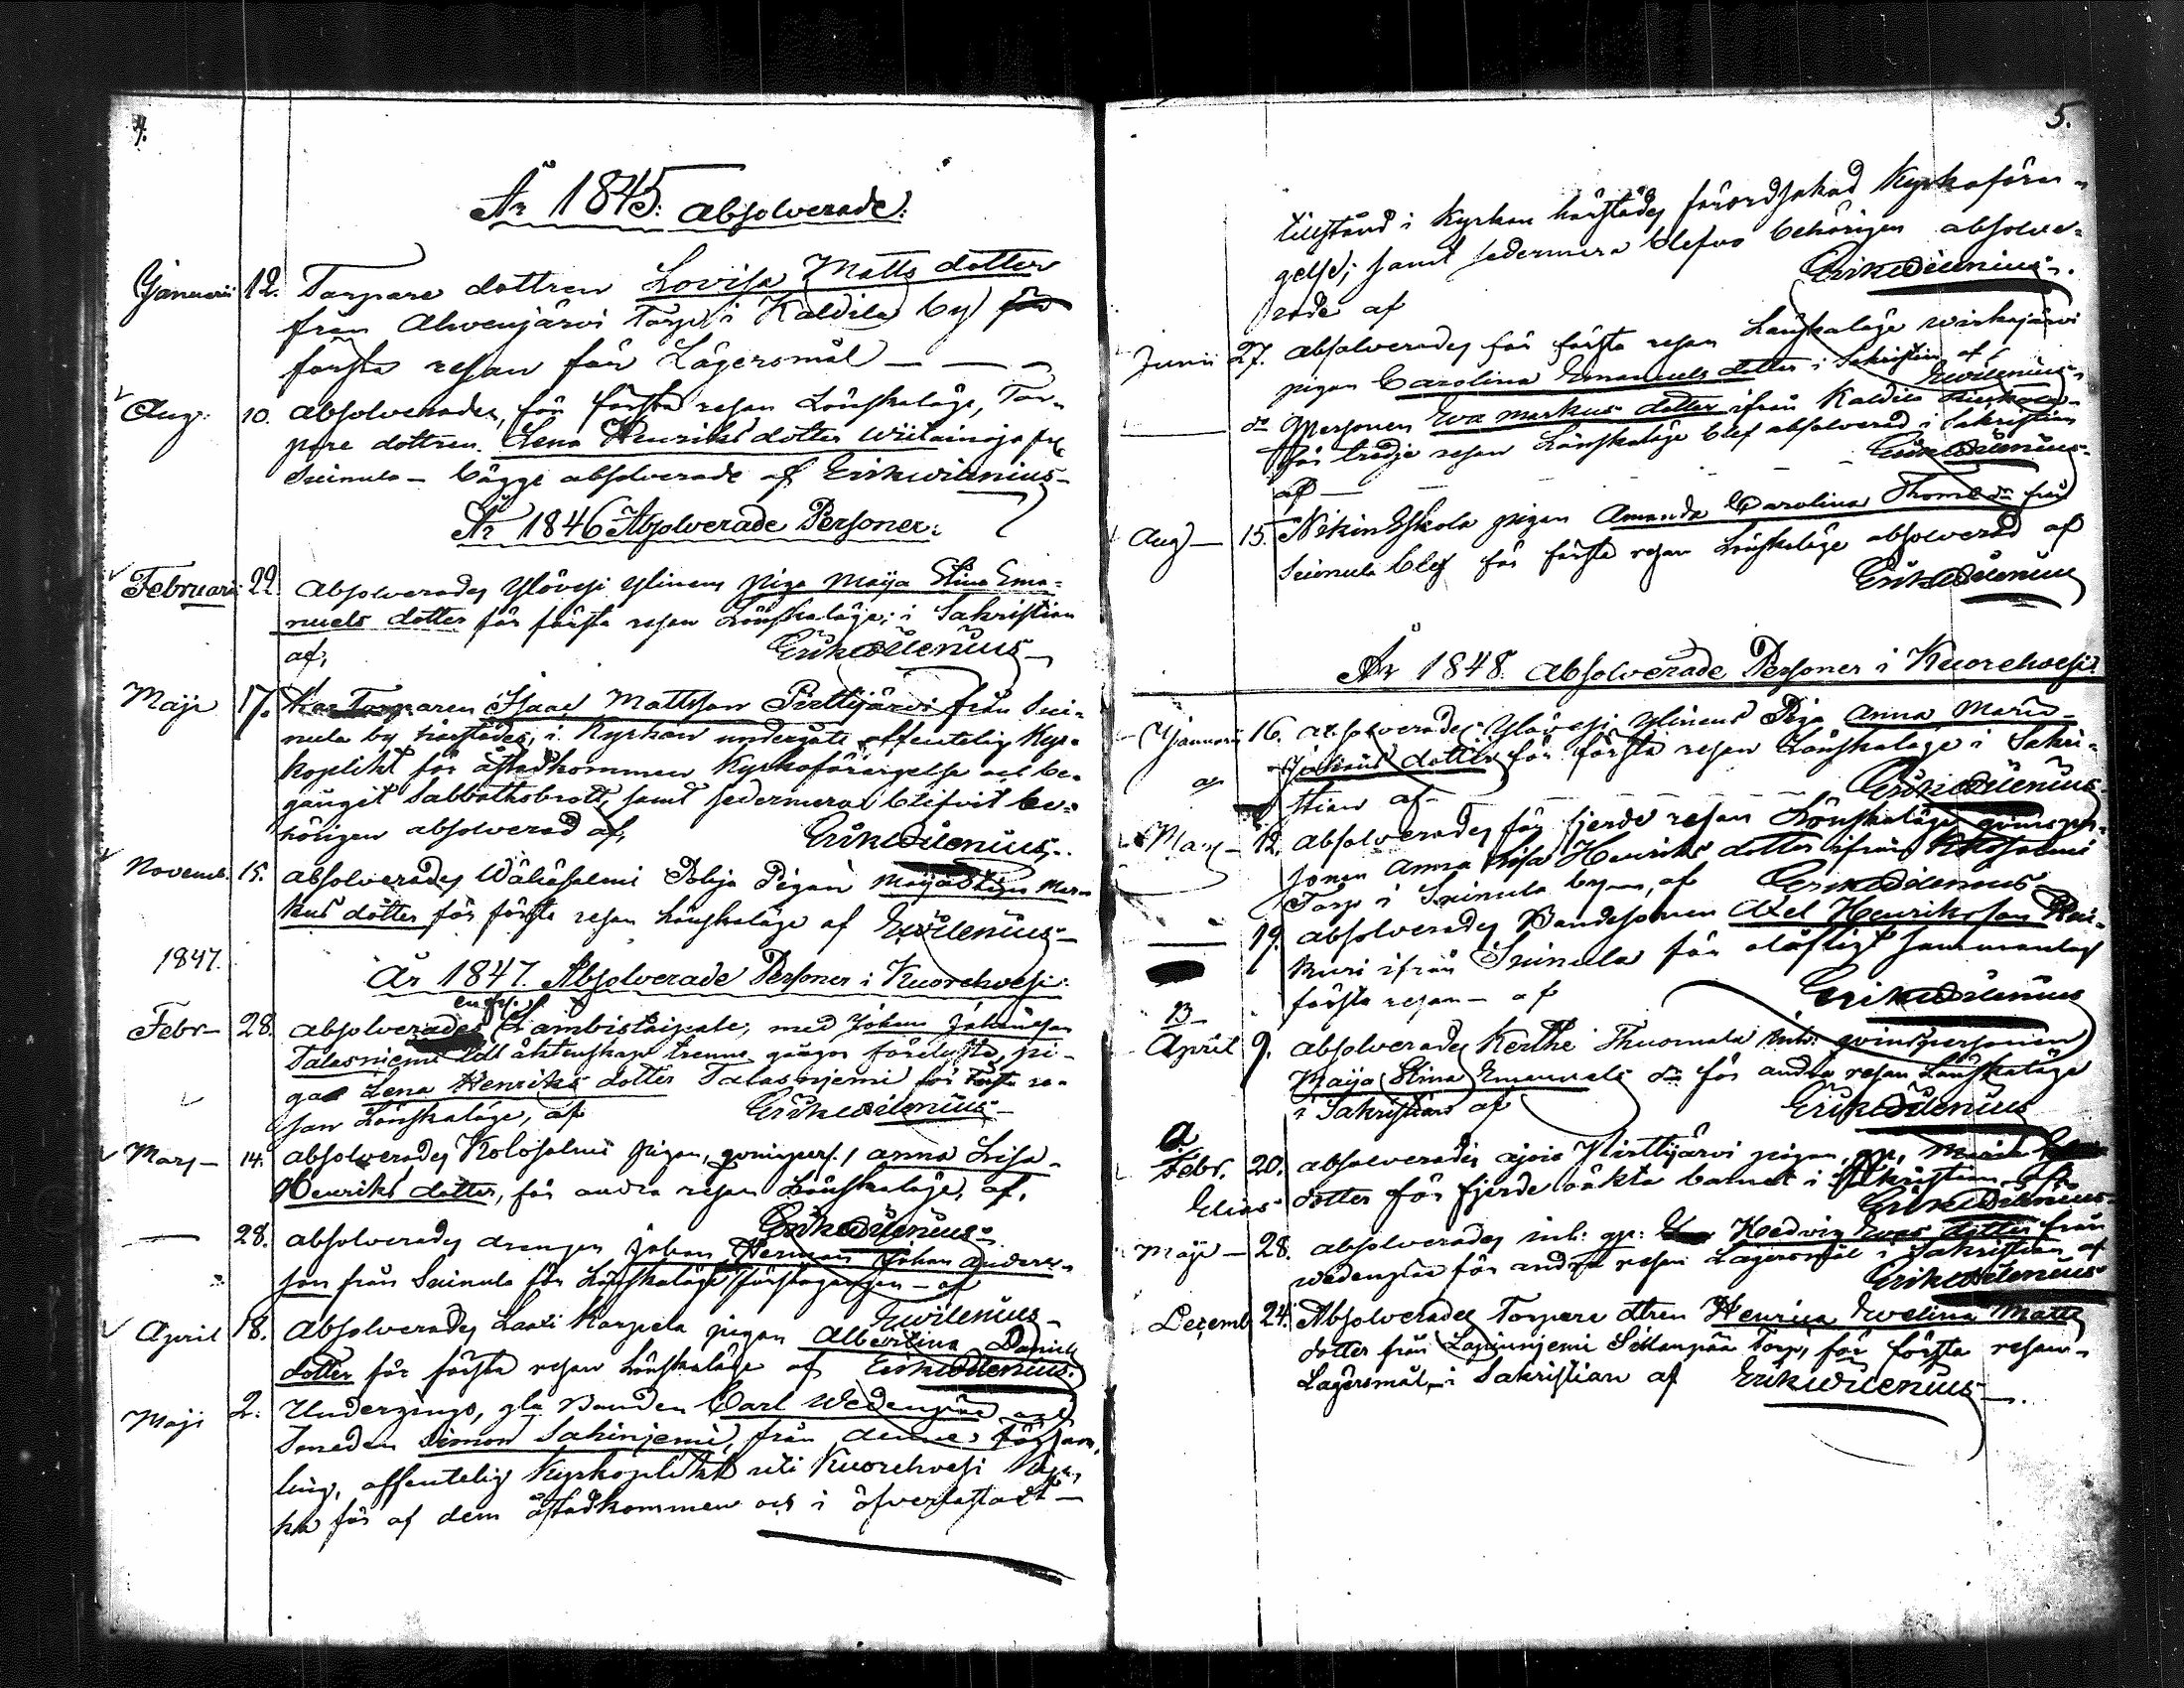 4.
År 1845. Absolverade:
Januarii 12. Torpare dottren Lovisa Matts dotter
från Ahvenjärvi Torp i Kaldila by för
första resan för Lägersmål —
Aug. 10. Absolverades, för första resan Lönskaläge, Tor-
pare dottren Lena Henriks dotter Wiitainoja
Suinula — bägge absolverade af Erik Wilenius
År 1846 Absolverade Personer:
Februarii 22 Absolverades Ylövesi Ylinens piga Maija Stina Ema-
nuels dotter för första resan Lönskaläge; i Sakristian
af, Erik Wilenius
Maji 17. Torparen Isaac Mattsson Pirttijärvi från Sui-
nula by härstädes, i Kyrkan undergått offentelig Kyr-
koplikt för åstadkommen Kyrkoförargelse och be-
gångit Sabbathsbrott, samt sedermera blifvit be-
hörigen absolverad af, Erik Wilenius
Novemb. 15. absolverades Wälisalmi Pohja Pigan Maija Stina Mar-
kus dotter för första resan Lönskaläge af EWilenius
1847.
År 1847. Absolverade Personer i Kuorehvesi
Febr— 28. absolverades Lambistaipale, med Johan Johansson
Talasniemi äktenskaps trenne gånger förelysta, pi-
gan Lena Henriks dotter Talasnjemi för första re-
san Lönskaläge, af Erik Wilenius
Mars— 14. absolverades Kolosalmi pigan, qvinspers. Anna Lisa
Henriks dotter, för andra resan Lönskaläge, af,
Erik Wilenius
— 28. absolverades drengen Johan Herman Johan Anders-
son från Suinula för Lönskaläge första gången — af
EWilenius
April 18. Absolverades Laxi Karpela pigan Albertina Daniels
dotter för första resan Lönskaläge af Erik Wilenius
Maji 2. Undergingo, gla Bonden Carl Wedenpää och
Smeden Simon Sahinjemi, från denne församm-
ling, offentelig Kyrkoplikt uti Kuorehvesi Kyr-
ka för af dem åstadkommen och i öfverlastadt —
5.
tillstånd i Kyrkan härstädes förorsakad Kyrkoförar-
gelse; samt sedermera blefvo behörigen absolve-
rade af Erik Wilenius
Junii 27. absolverades för första resan Lönskaläge Wirkajärvi
pigan Carolina Emanuels dotter i Sakristin af EWilenius
— dn Qpersonen Ewa Markus dotter ifrån Kaldila
för tredje resan Lönskaläge blef absolverad i Sakristian
af — Erik Wilenius
Aug— 15. Nikin Eskola pigan Amanda Carolina Thome dr från
Suinula blef för första resan Lönskaläge absolverad af
Erik Wilenius
År 1848. Absolverade Personer i Kuorehvesi.
Januarii 16. absolverades Ylövesi Ylinens Piga Anna Maria
Johans dotter för första resan Lönskaläge i Sakri-
stian af — Erik Wilenius
Mars— 12. absolverades för fjerde resan Lönskaläge qvinsper-
sonen Anna Lisa Henriks dotter ifrån Kolosalmi
Torp i Suinula by—, af Erik Wilenius
— 19. absolverades Bondesonen Axel Henriksson
ifrån Suinula för olofligt sammanlag
första resan — af Erik Wilenius
B—
April 9. absolverades Kerthe Thuomala inh: qvinspersonen
Maija Stina Emanuels dr för andra resan Lönskaläge
i Sakristian af Erik Wilenius
a
Febr. 20. absolverades ajois Pirttijärvi pigan, qp, Maria
Elias dotter för fjerde oäkta barnet i Sakristian af
Erik Wilenius
Maji— 28. absolverades inh: qp: Hedvig Ewas dotter från
Wedenpää för andra resan Lägersmål i Sakristian af
Erik Wilenius
Decemb 24. Absolverades Torpare dtren Henrica Ewelina Matts
dotter från Lapinnjemi Sillanpää Torp, för första resan
Lägersmål, i Sakristian af Erik Wilenius